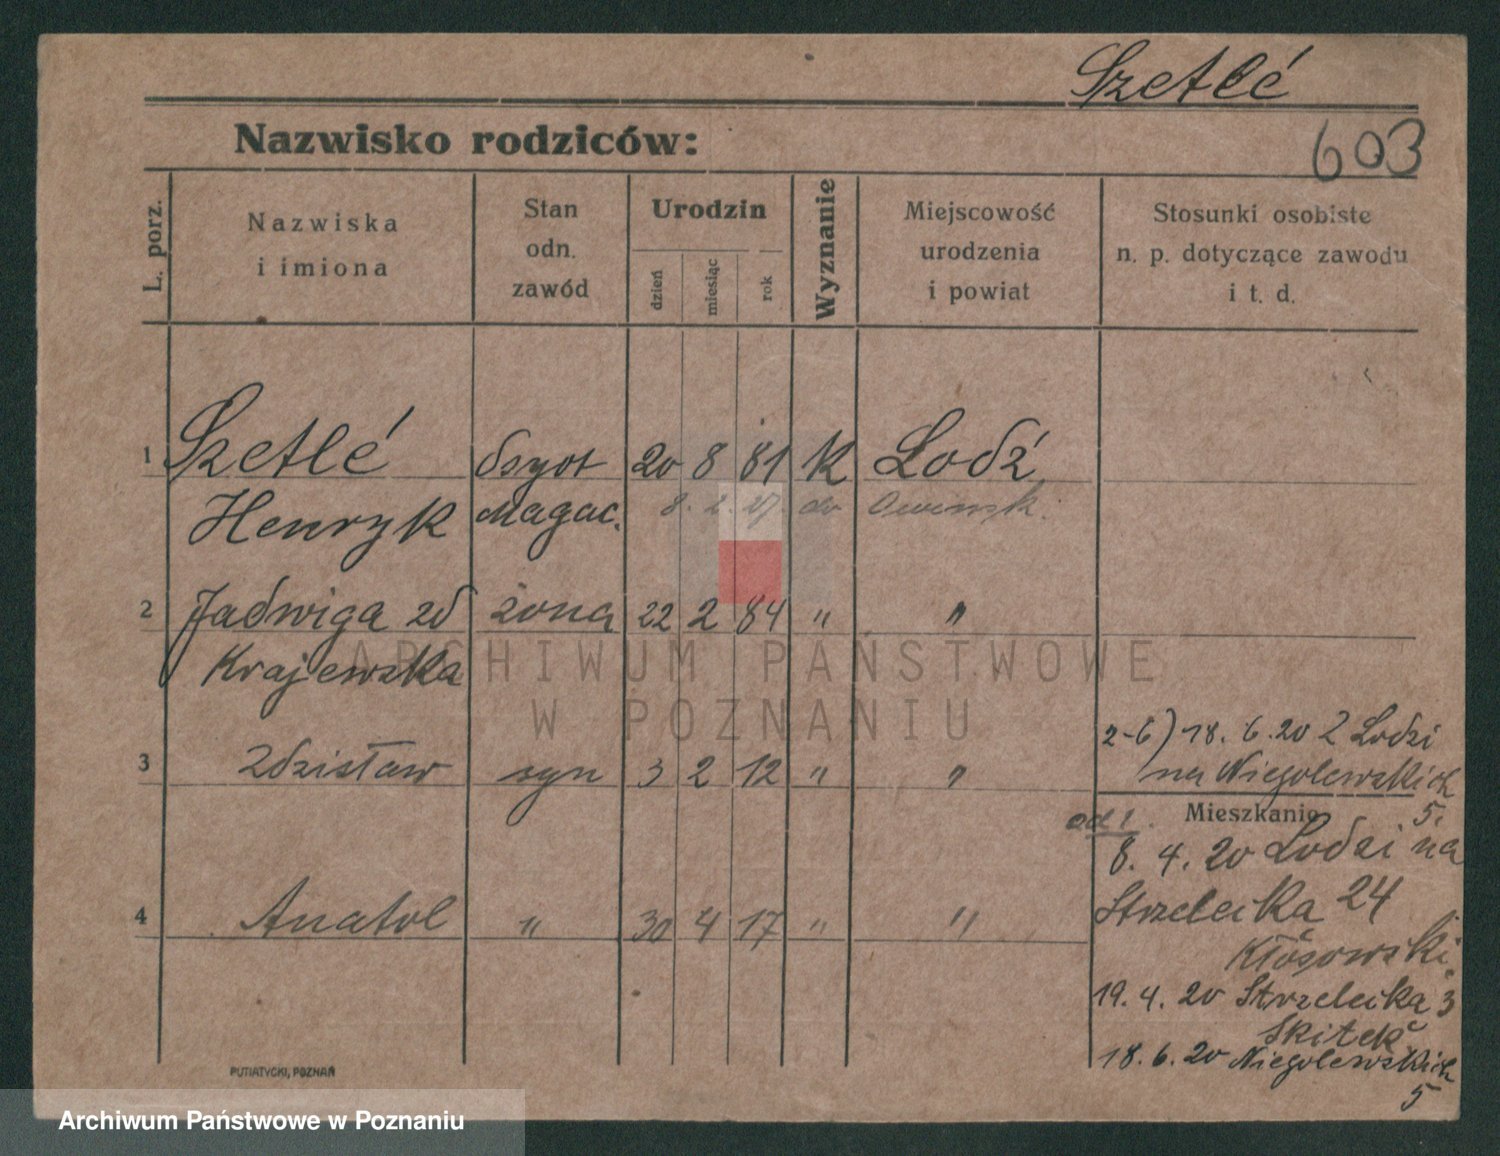 Szetlé
Nazwisko rodziców:
603
L. porz.
Nazwiska
i imiona
Stan
odn.
zawód
Urodzin
dzień
miesiąc
rok
Wyznanie
Miejscowość
urodzenia
i powiat
Stosunki osobiste
n. p. dotyczące zawodu
i t. d.
1 Szetlé 20 8 81 K Lodź
Henryk Magac. 8. 2. 27. do
2 Jadwiga zd żona 22 2 84 " "
Krajewska
ARCHIWUM PAŃSTWOWE
W POZNANIU
2-6) 18. 6. 20 z Lodzi
3 Zdzisław syn 3 2 12 " "
na Niegolewskich
5.
Mieszkanie
od 1.
8. 4. 20 Lodzi na
4 Anatol " 30 4 17 " "
Strzelecka 24
Kłosowski.
19. 4. 20 Strzelecka 3
Skitek
18. 6. 20 Niegolewskich
5
PUTIATYCKI, POZNAŃ
Archiwum Państwowe w Poznaniu